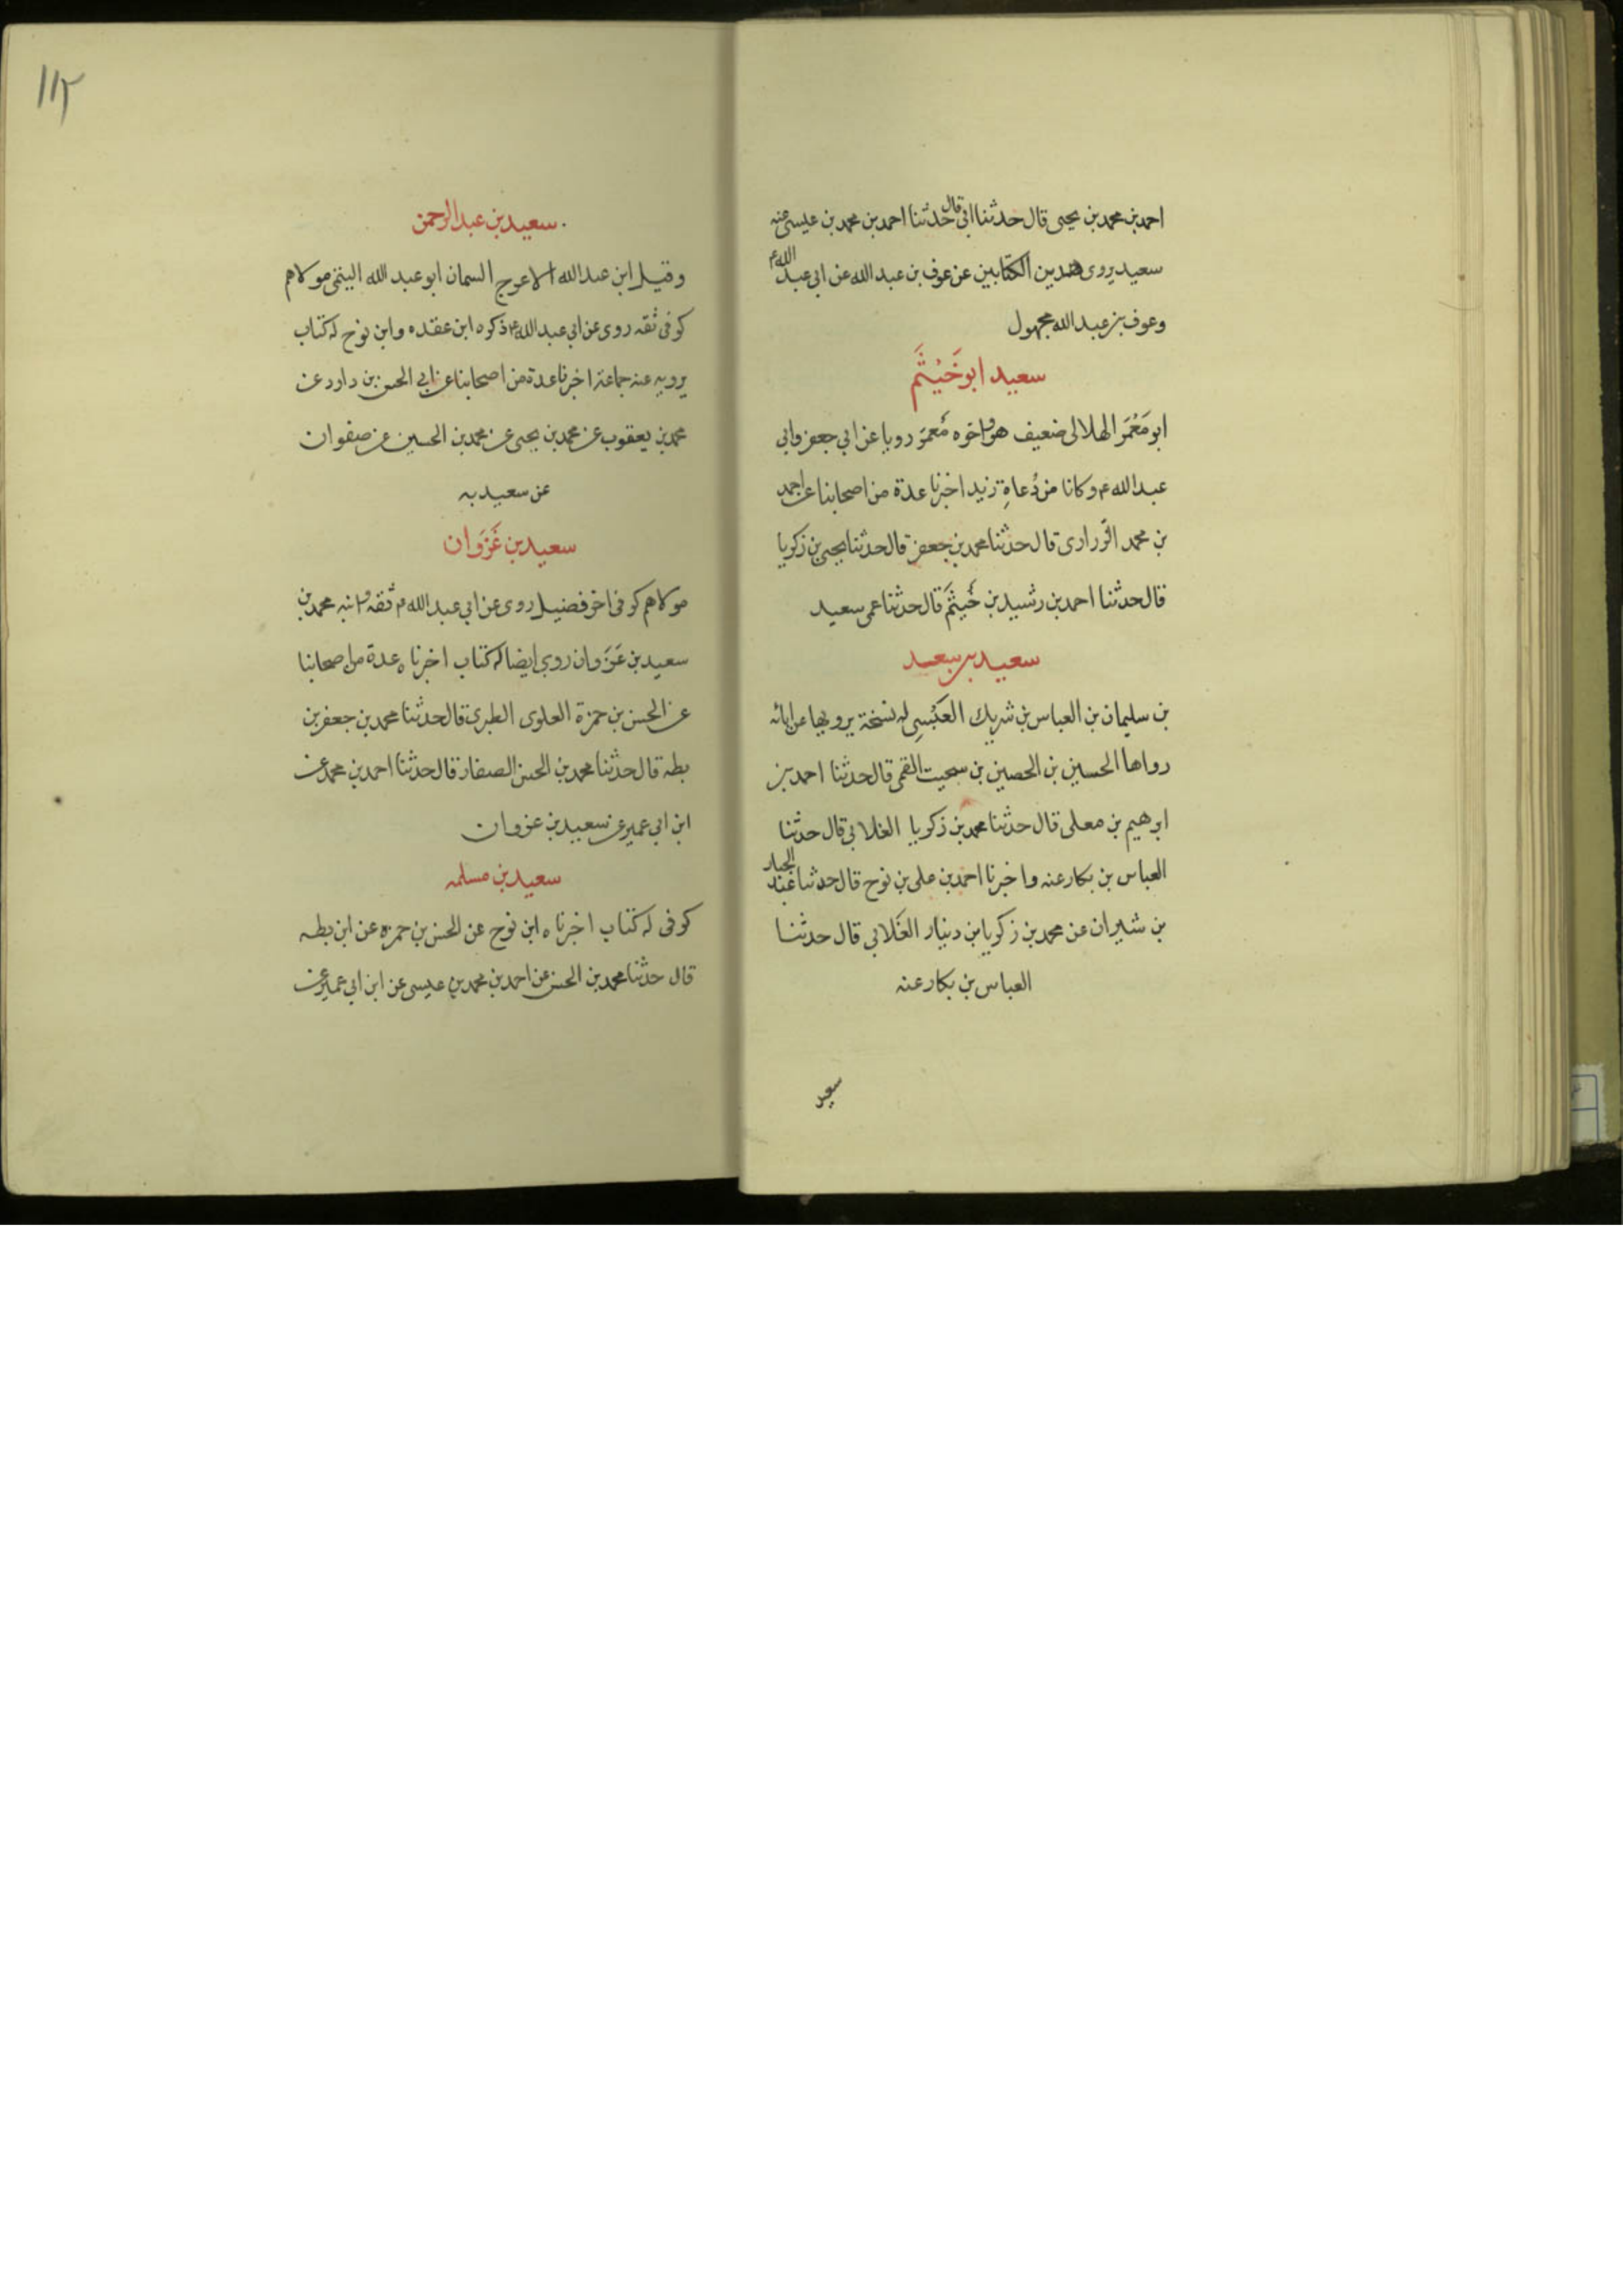 احمد بن محمد بن يحيى قال حدثنا ابى قال حدثنا احمد بن محمد بن عيسى عنه
سعيد يروى هذين الكتابين عن عوف بن عبد الله عن ابى عبد الله ع
وعوف بن عبد الله مجهول
سعيد ابو خَيْثَم
ابو مَعْمَر الهلالى ضعيف هو واخوه مَعمَر رويا عن ابى جعفر وابى
عبد الله ع وكانا من دُعاةِ زيد اخبرنا عدة من اصحابنا عن احمد
بن محمد الزرارى قال حدثنا محمد بن جعفر قال حدثنا يحيى بن زكريا
قال حدثنا احمد بن رشيد بن خَيثَم قال حدثنا عمى سعيد
سعيد بن سعيد
بن سليمان بن العباس بن شريك العبْسِى له نسخة يرويها عن ابائه
رواها الحسين بن الحصين بن سحيت القمى قال حدثنا احمد بن
ابرهيم بن معلى قال حدثنا محمد بن زكريا الغلابى قال حدثنا
العباس بن بكار عنه واخبرنا احمد بن على بن نوح قال حدثنا عبد الجبار
بن شيران عن محمد بن زكريا بن دينار الغَلابى قال حدثنا
العباس بن بكار عنه
سعيد
١١٢
سعيد بن عبد الرحمن
وقيل ابن عبد الله الاعرج السمان ابو عبد الله التيمى مولاهم
كوفى ثقه روى عن ابى عبد الله ع ذكره ابن عقده وابن نوح له كتاب
يرويه عنه جماعة اخبرنا عدة من اصحابنا عن ابى الحسن بن داود عن
محمد بن يعقوب عن محمد بن يحيى عن محمد بن الحسين عن صفوان
عن سعيد به
سعيد بن غَزَوَان
مولاهم كوفى اخو فضيل روى عن ابى عبد الله ع ثقه وابنه محمد بن
سعيد بن غَزَوان روى ايضا له كتاب اخبرناه عدة من اصحابنا
عن الحسن بن حمزة العلوى الطبرى قال حدثنا محمد بن جعفر بن
بطه قال حدثنا محمد بن الحسن الصفار قال حدثنا احمد بن محمد عن
ابن ابى عمير عن سعيد بن غزوان
سعيد بن مسلمه
كوفى له كتاب اخبرناه ابن نوح عن الحسن بن حمزه عن ابن بطه
قال حدثنا محمد بن الحسن عن احمد بن محمد بن عيسى عن ابن ابى عمير عن